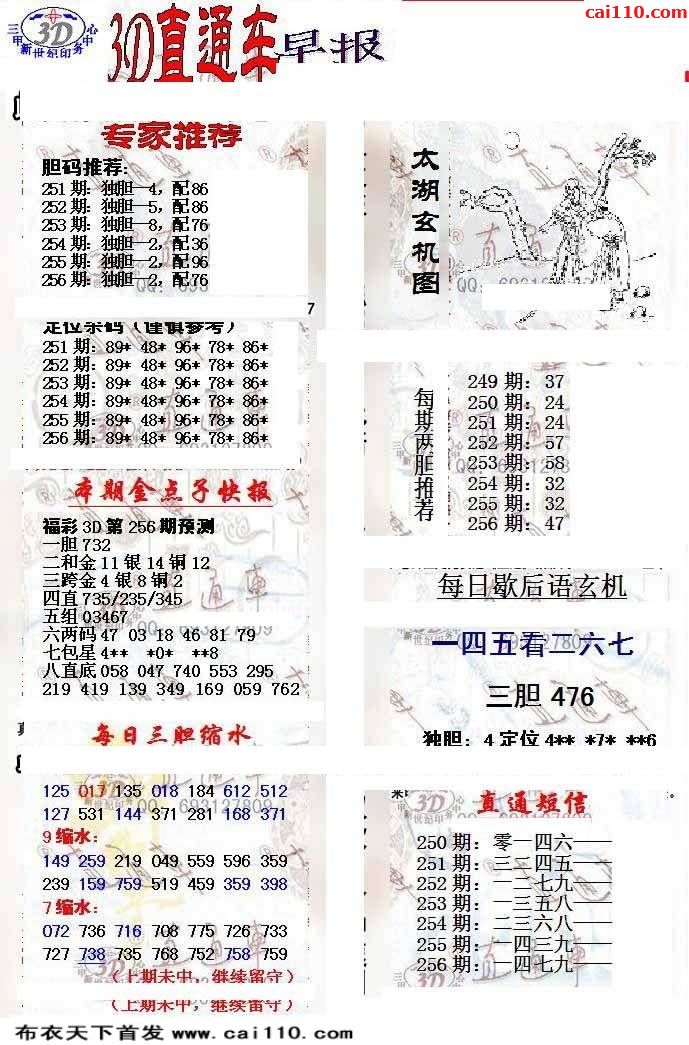 cai110.com
三甲 3D 中心
新世纪印务
3D直通车早报
专家推荐
胆码推荐:
251期: 独胆—4, 配86
252期: 独胆—5, 配86
253期: 独胆—8, 配76
254期: 独胆—2, 配36
255期: 独胆—2, 配96
256期: 独胆—2, 配76
7
定位杀码（谨慎参考）
251期: 89* 48* 96* 78* 86*
252期: 89* 48* 96* 78* 86*
253期: 89* 48* 96* 78* 86*
254期: 89* 48* 96* 78* 86*
255期: 89* 48* 96* 78* 86*
256期: 89* 48* 96* 78* 86*
本期金点子快报
福彩3D第256期预测
一胆732
二和金11银14铜12
三跨金4银8铜2
四直735/235/345
五组03467
六两码47 03 18 46 81 79
七包星4** *0* **8
八直底058 047 740 553 295
219 419 139 349 169 059 762
每日三胆缩水
125 017 135 018 184 612 512
127 531 144 371 281 168 371
9缩水:
149 259 219 049 559 596 359
239 159 759 519 459 359 398
7缩水:
072 736 716 708 775 726 733
727 738 735 768 752 758 759
（上期未中，继续留守）
（上期未中，继续留守）
太湖玄机图
每期两胆推荐
249期: 37
250期: 24
251期: 24
252期: 57
253期: 58
254期: 32
255期: 32
256期: 47
每日歇后语玄机
一四五看二六七
三胆 476
独胆: 4 定位4** *7* **6
直通短信
250期: 零一四六——
251期: 三二四五——
252期: 一二七九——
253期: 一三五八——
254期: 二三六八——
255期: 一四三九——
256期: 一四七九——
布衣天下首发 www.cai110.com